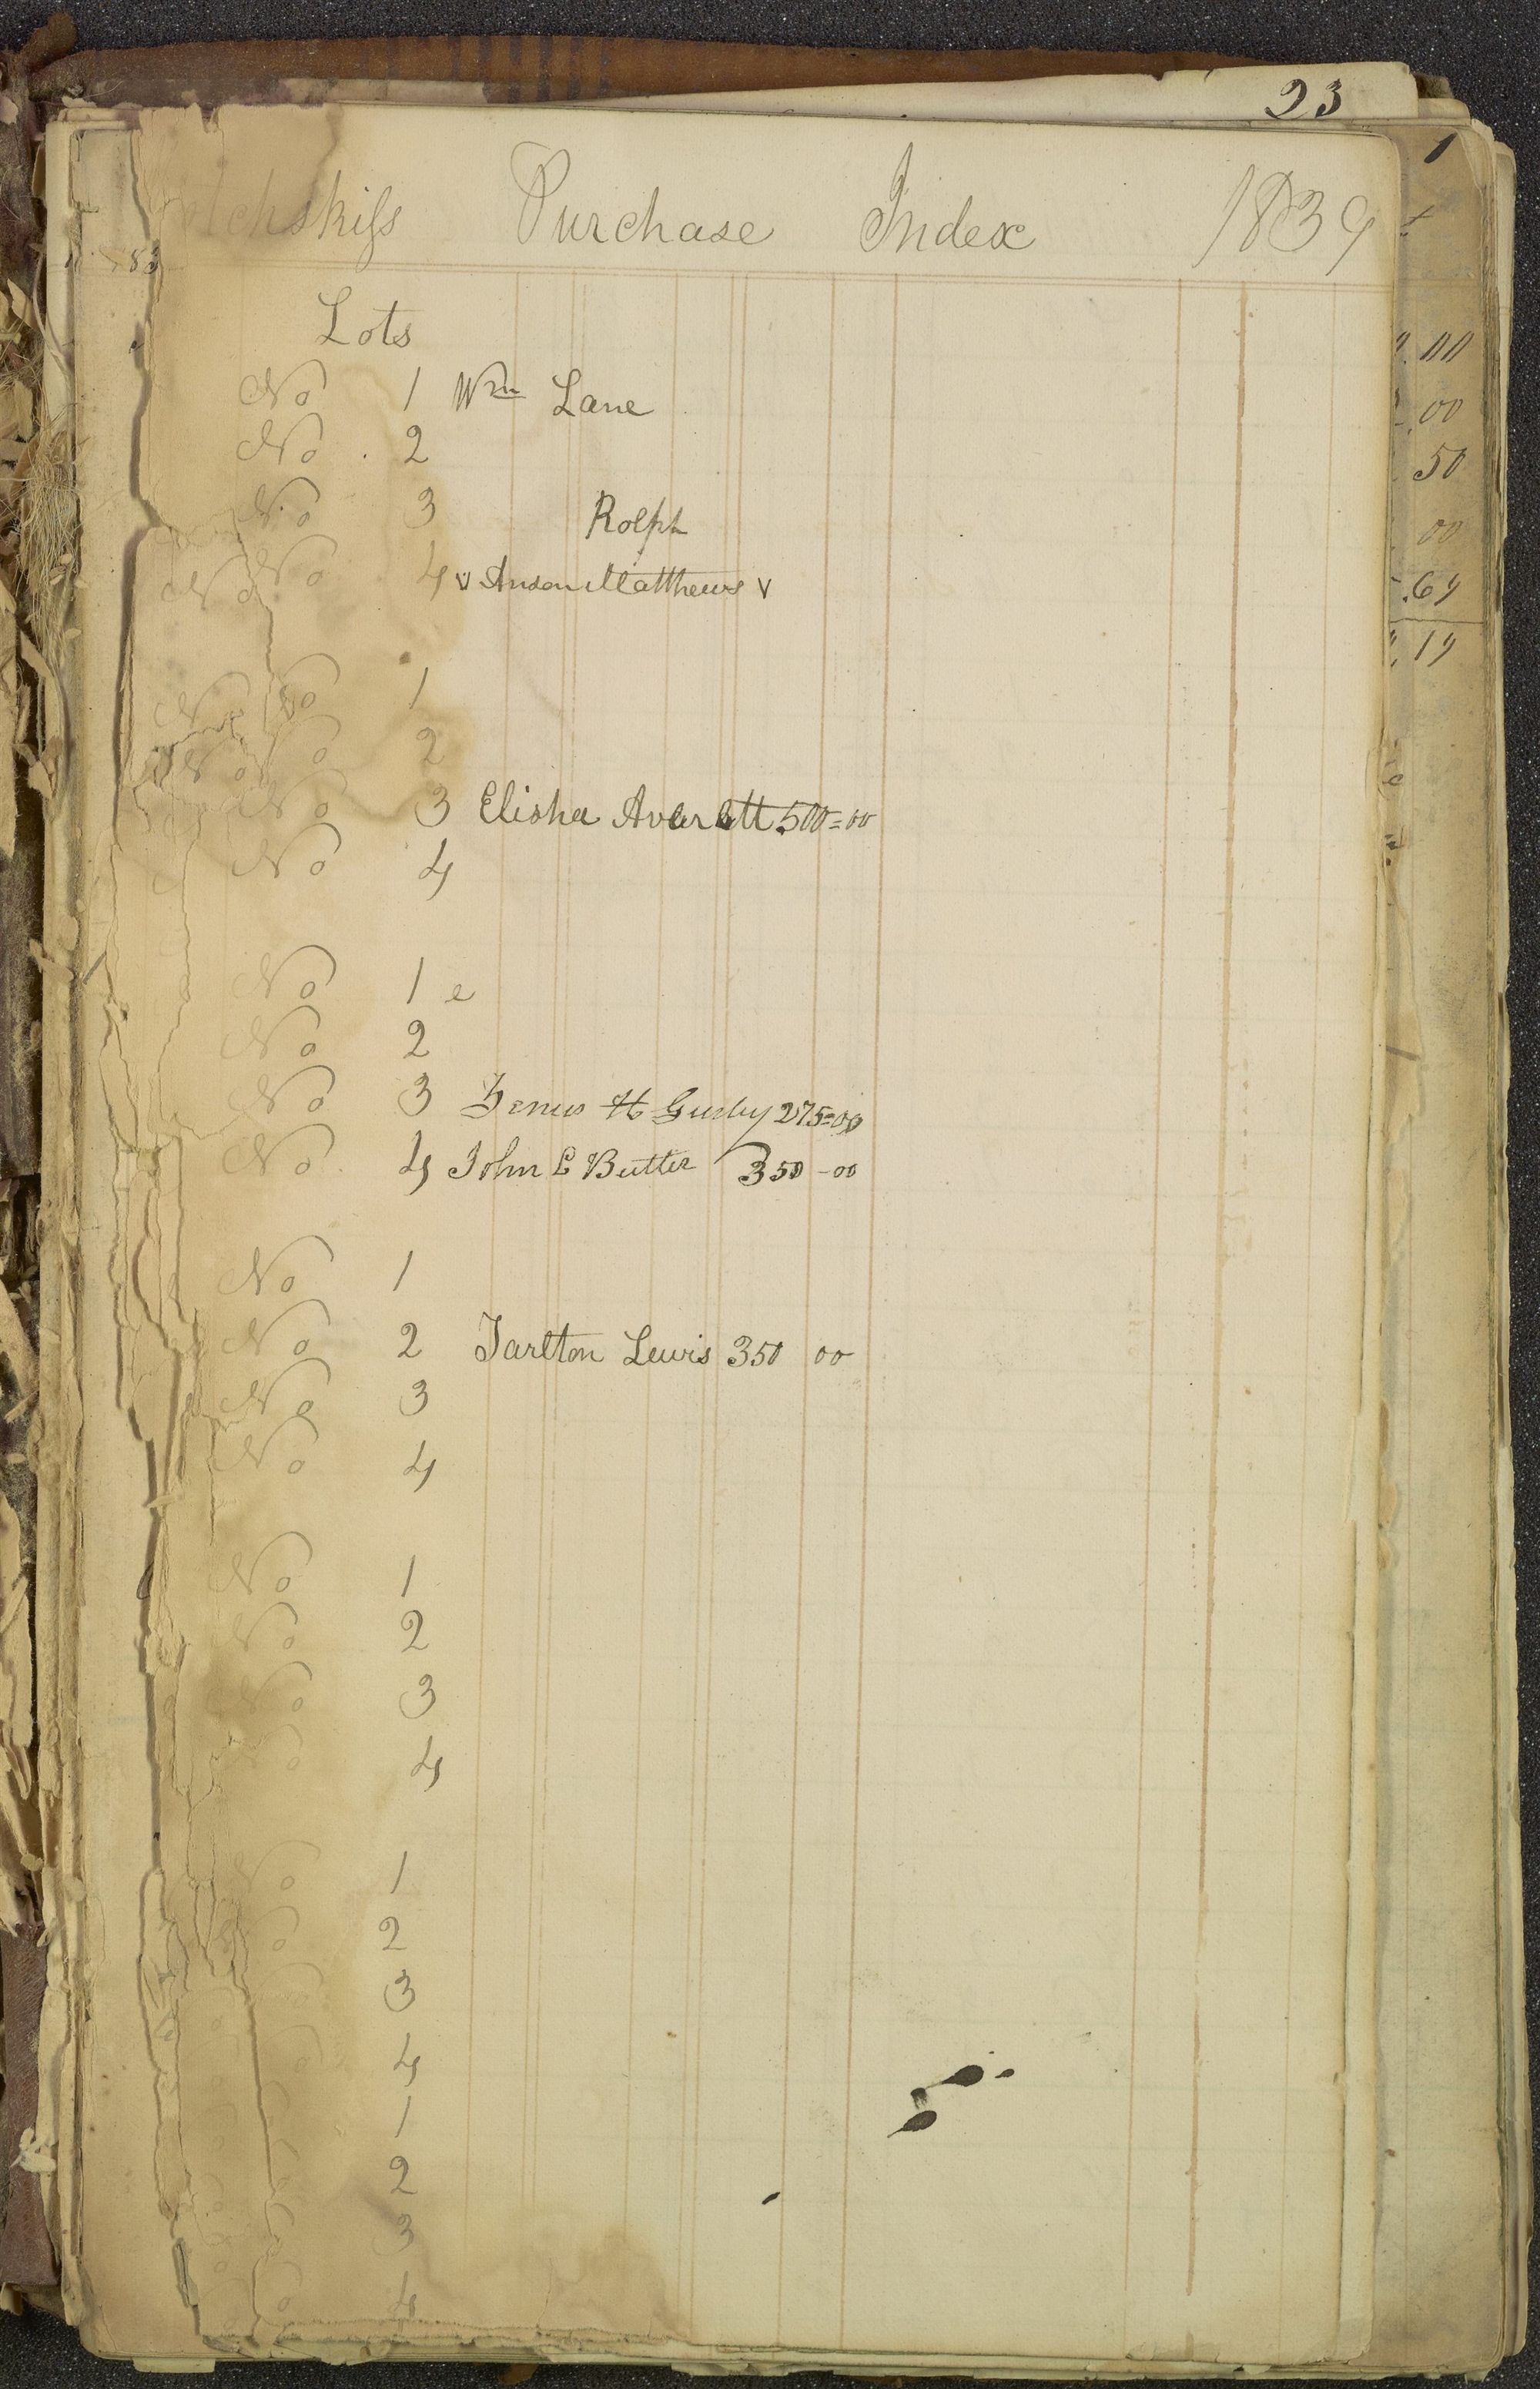 23
1
Purchase Index 1839
83
Lots
No 1 Wm Lane
No 2
No 3 Rolph
No No 4 v Anson Matthews v
No No 1
No o 2
No 3 Elisha Averett 500=00
No 4
No 1 e
No 2
No 3 H Gurley 275=00
No 4 John L Butler 350-00
No 1
No 2 Tarlton Lewis 350 00
No 3
No 4
No 1
No 2
No 3
No 4
No 1
2
3
4
1
2
3
4
.00
.00
50
00
.64
.14